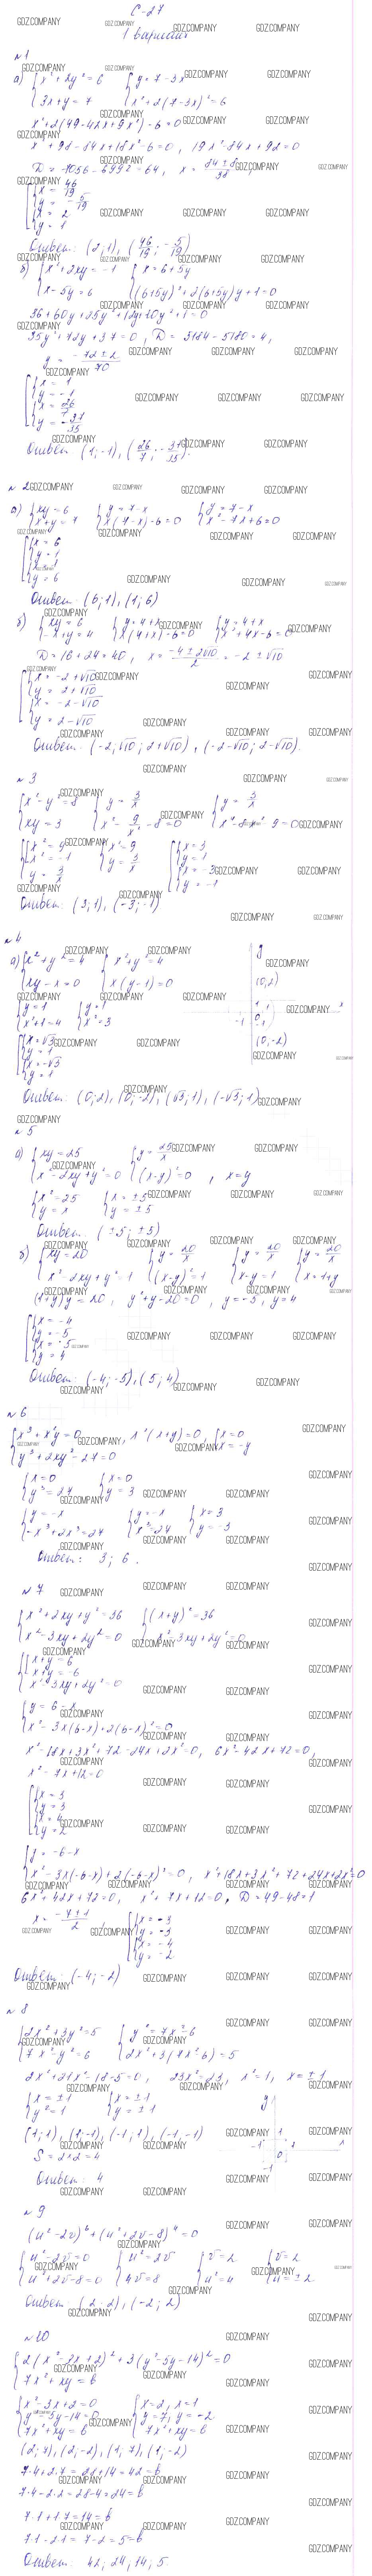 С-27
1 вариант
№1
а) { x² + 2y² = 6 { y = 7 - 3x
3x + y = 7 x² + 2(7 - 3x)² = 6
x² + 2(49 - 42x + 9x²) - 6 = 0
x² + 98 - 84x + 18x² - 6 = 0, 19x² - 84x + 92 = 0
D = 7056 - 6992 = 64, x = (84 ± 8)/38
x = 46/19
y = -5/19
x = 2
y = 1
Ответ: (2; 1), (46/19; -5/19)
б) { x² + 2xy = -1 { x = 6 + 5y
x - 5y = 6 (6+5y)² + 2(6+5y)y + 1 = 0
36 + 60y + 25y² + 12y + 10y² + 1 = 0
35y² + 72y + 37 = 0, D = 5184 - 5180 = 4,
y = (-72 ± 2)/70
x = 1
y = -1
x = 26/7
y = -37/35
Ответ: (1; -1), (26/7; -37/35).
№2
а) { xy = 6 { y = 7 - x { y = 7 - x
x + y = 7 x(7 - x) - 6 = 0 x² - 7x + 6 = 0
x = 6
y = 1
x = 1
y = 6
Ответ: (6; 1), (1; 6)
б) { xy = 6 { y = 4 + x { y = 4 + x
-x + y = 4 x(4 + x) - 6 = 0 x² + 4x - 6 = 0
D = 16 + 24 = 40, x = (-4 ± 2√10)/2 = -2 ± √10
x = -2 + √10
y = 2 + √10
x = -2 - √10
y = 2 - √10
Ответ: (-2+√10; 2+√10), (-2-√10; 2-√10).
№3
{ x² - y² = 8 { y = 3/x { y = 3/x
xy = 3 x² - 9/x² - 8 = 0 x⁴ - 8x² - 9 = 0
x² = 9 x² = 9 x = 3
x² = -1 y = 3/x y = 1
y = 3/x x = -3
y = -1
Ответ: (3; 1), (-3; -1)
№4
а) { x² + y² = 4 { x² + y² = 4
xy - x = 0 x(y - 1) = 0
y = 1 y = 1
x² + 1 = 4 x² = 3
x = √3
y = 1
x = -√3
y = 1
y
(0; 2)
1
x
-1 0 1
(0; -2)
Ответ: (0; 2), (0; -2), (√3; 1), (-√3; 1)
№5
а) { xy = 25 { y = 25/x
x² - 2xy + y² = 0 (x - y)² = 0, x = y
x² = 25 x = ±5
y = x y = ±5
Ответ: (±5; ±5)
б) { xy = 20 { y = 20/x { y = 20/x { y = 20/x
x² - 2xy + y² = 1 (x - y)² = 1 x - y = 1 x = 1 + y
(1 + y)y = 20, y² + y - 20 = 0, y = -5, y = 4
x = -4
y = -5
x = 5
y = 4
Ответ: (-4; -5), (5; 4)
№6
{ x³ + x²y = 0, x²(x + y) = 0, x = 0
y³ + 2xy² - 27 = 0 x = -y
x = 0 x = 0
y³ = 27 y = 3
y = -x y = -x x = 3
-x³ + 2x³ = 27 x³ = 27 y = -3
Ответ: 3; 6.
№7
{ x² + 2xy + y² = 36 { (x + y)² = 36
x² - 3xy + 2y² = 0 x² - 3xy + 2y² = 0
x + y = 6
x + y = -6
x² - 3xy + 2y² = 0
y = 6 - x
x² - 3x(6 - x) + 2(6 - x)² = 0
x² - 18x + 3x² + 72 - 24x + 2x² = 0, 6x² - 42x + 72 = 0,
x² - 7x + 12 = 0
x = 3
y = 3
x = 4
y = 2
y = -6 - x
x² - 3x(-6-x) + 2(-6-x)² = 0, x² + 18x + 3x² + 72 + 24x + 2x² = 0
6x² + 42x + 72 = 0, x² + 7x + 12 = 0, D = 49 - 48 = 1
x = (-7 ± 1)/2 x = -3
y = -3
x = -4
y = -2
Ответ: (-4; -2)
№8
{ 2x² + 3y² = 5 { y² = 7x² - 6
7x² - y² = 6 2x² + 3(7x² - 6) = 5
2x² + 21x² - 18 - 5 = 0, 23x² = 23, x² = 1, x = ±1
x = ±1 x = ±1
y² = 1 y = ±1
(1; 1), (1; -1), (-1; 1), (-1; -1)
S = 2·2 = 4
y
1
-1 0 1 x
-1
Ответ: 4
№9
(u² - 2v)⁶ + (u² + 2v - 8)⁴ = 0
{ u² - 2v = 0 { u² = 2v { v = 2 { v = 2
u² + 2v - 8 = 0 4v = 8 u² = 4 u = ±2
Ответ: (2; 2), (-2; 2)
№10
{ 2(x² - 3x + 2)² + 3(y² - 5y - 14)² = 0
7x² + xy = b
x² - 3x + 2 = 0 x = 2, x = 1
y² - 5y - 14 = 0 y = 7, y = -2
7x² + xy = b 7x² + xy = b
(2; 7), (2; -2), (1; 7), (1; -2)
7·4 + 2·7 = 28 + 14 = 42 = b
7·4 - 2·2 = 28 - 4 = 24 = b
7·1 + 1·7 = 14 = b
7·1 - 2·1 = 7 - 2 = 5 = b
Ответ: 42; 24; 14; 5.
GDZ.COMPANY